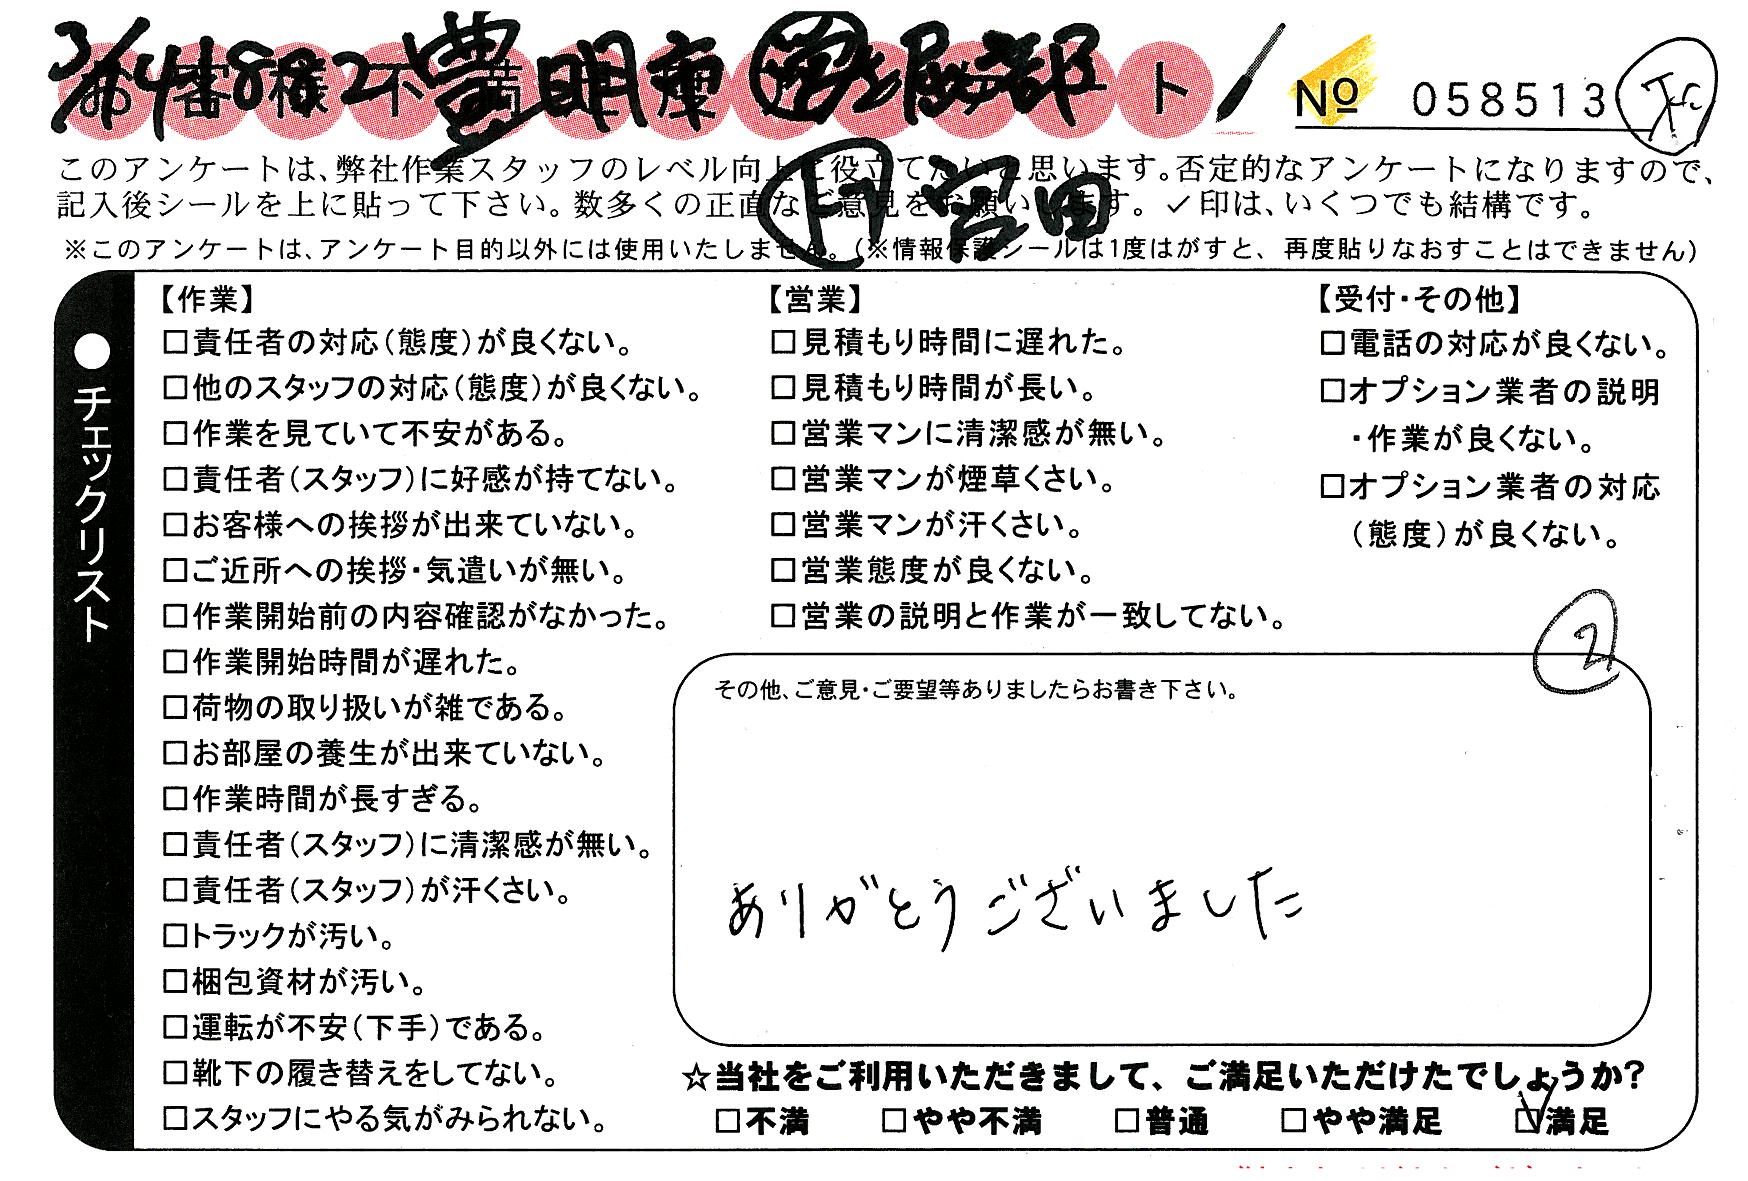 豊明庫
№ 058513
このアンケートは、弊社作業スタッフのレベル向上に役立てたいと思います。否定的なアンケートになりますので、
記入後シールを上に貼って下さい。数多くの正直なご意見をお願いします。✓印は、いくつでも結構です。
宮田
※このアンケートは、アンケート目的以外には使用いたしません。(※情報保護シールは1度はがすと、再度貼りなおすことはできません)
●チェックリスト
【作業】
□責任者の対応(態度)が良くない。
□他のスタッフの対応(態度)が良くない。
□作業を見ていて不安がある。
□責任者(スタッフ)に好感が持てない。
□お客様への挨拶が出来ていない。
□ご近所への挨拶・気遣いが無い。
□作業開始前の内容確認がなかった。
□作業開始時間が遅れた。
□荷物の取り扱いが雑である。
□お部屋の養生が出来ていない。
□作業時間が長すぎる。
□責任者(スタッフ)に清潔感が無い。
□責任者(スタッフ)が汗くさい。
□トラックが汚い。
□梱包資材が汚い。
□運転が不安(下手)である。
□靴下の履き替えをしてない。
□スタッフにやる気がみられない。
【営業】
□見積もり時間に遅れた。
□見積もり時間が長い。
□営業マンに清潔感が無い。
□営業マンが煙草くさい。
□営業マンが汗くさい。
□営業態度が良くない。
□営業の説明と作業が一致してない。
【受付・その他】
□電話の対応が良くない。
□オプション業者の説明
・作業が良くない。
□オプション業者の対応
(態度)が良くない。
②
その他、ご意見・ご要望等ありましたらお書き下さい。
ありがとうございました
☆当社をご利用いただきまして、ご満足いただけたでしょうか?
□不満 □やや不満 □普通 □やや満足 ☑満足